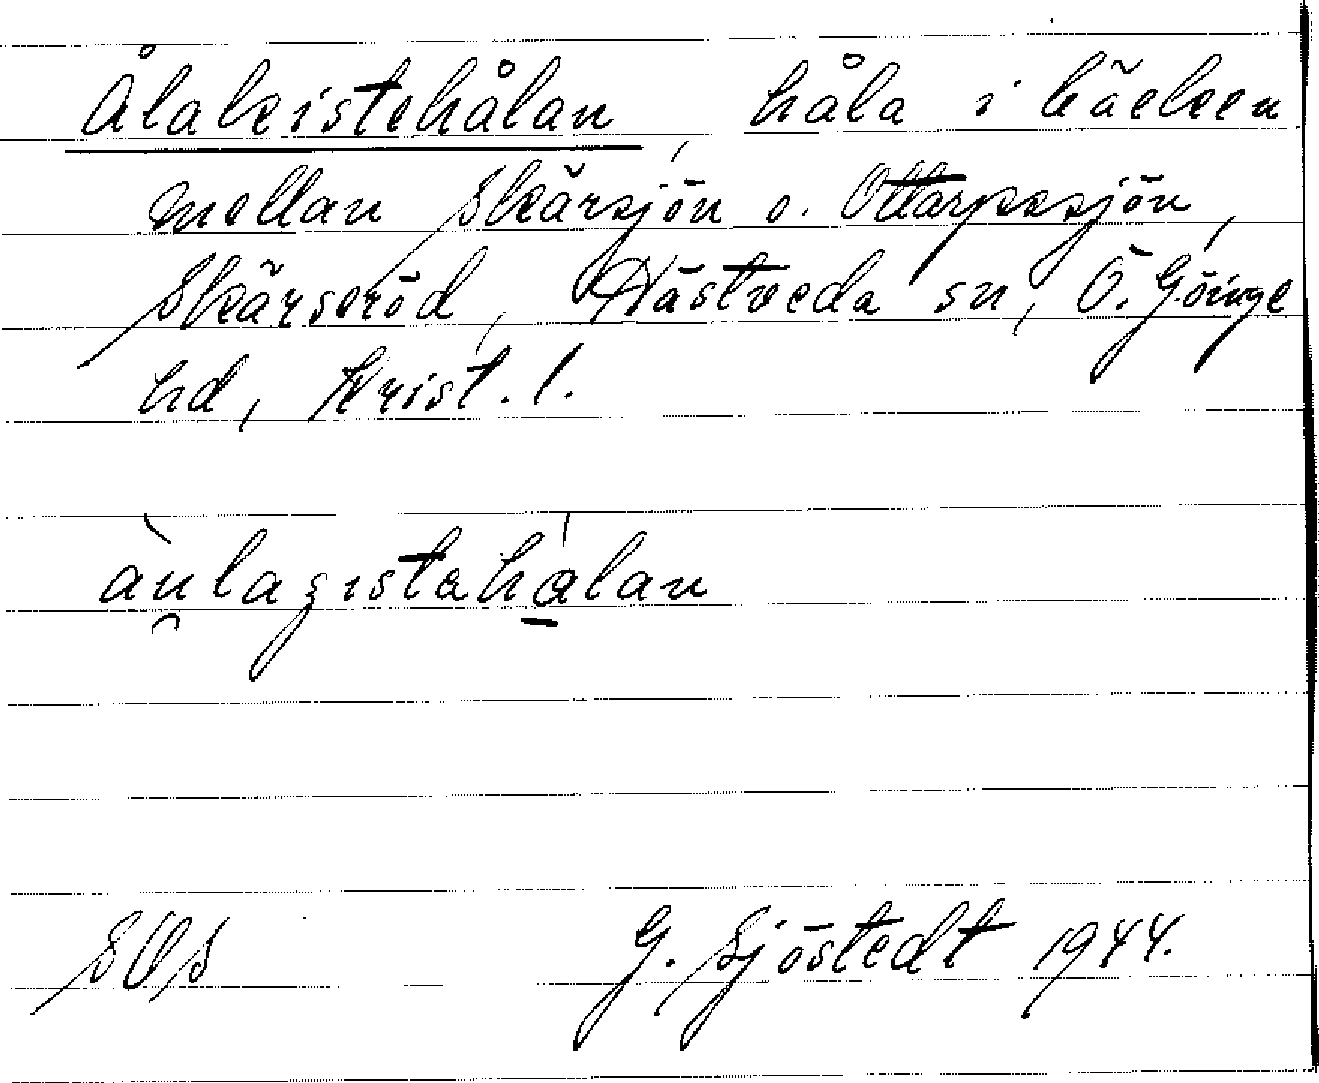 Ålakistehålan, håla i bäcken
mellan Skärsjön o. Ottarpasjön,
Skärseröd, Hästveda sn, Ö. Göinge
hd, Krist. l.
SOS G. Sjöstedt 1944.